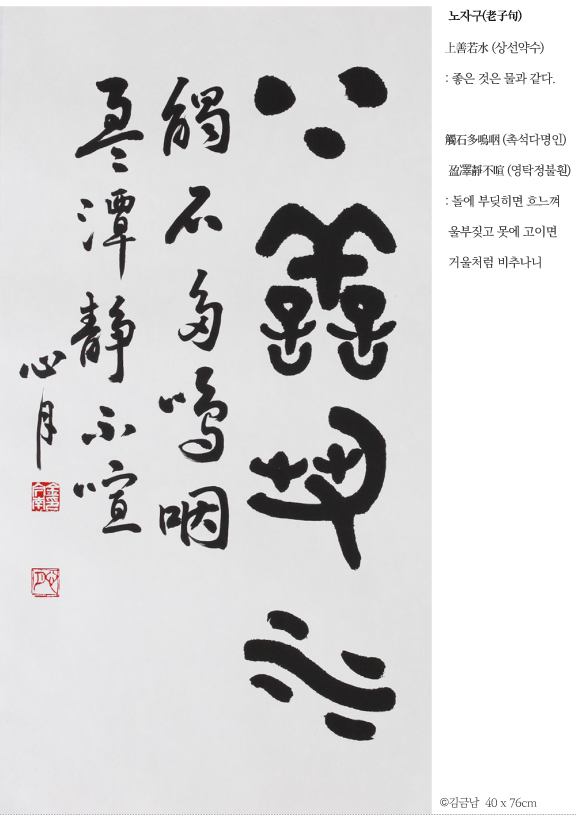 上善若水
觸石多嗚咽
盈潭靜不喧
心月
노자구(老子句)
上善若水 (상선약수)
: 좋은 것은 물과 같다.
觸石多嗚咽 (촉석다명인)
盈澤靜不喧 (영탁정불훤)
: 돌에 부딪히면 흐느껴
울부짖고 못에 고이면
거울처럼 비추나니
©김금남 40 x 76cm